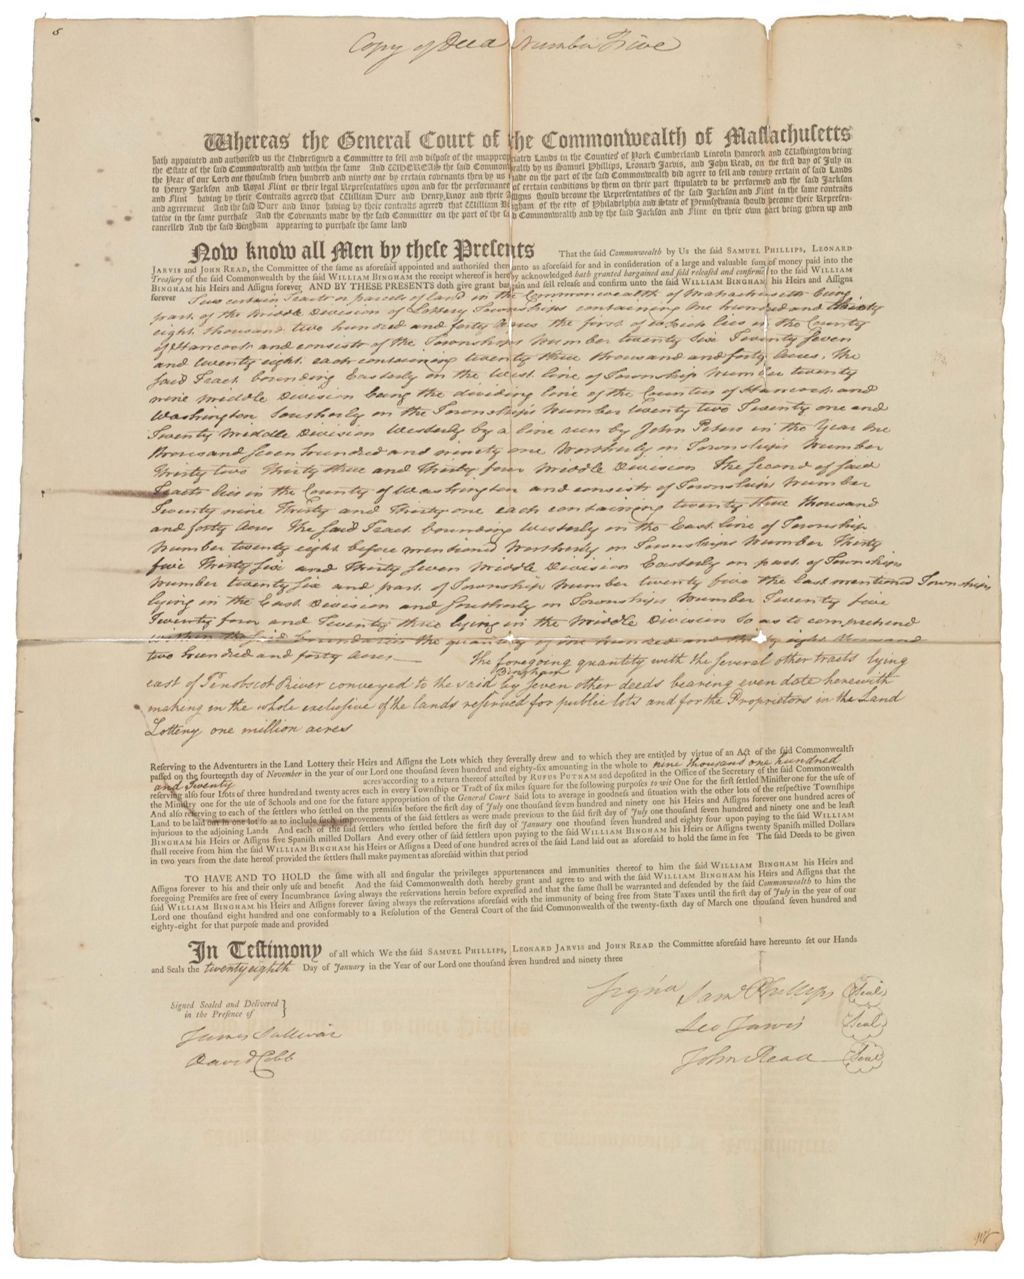 5
Copy of Deed Number Five
Whereas the General Court of the Commonwealth of Massachusetts
hath appointed and authorised us the Undersigned a Committee to sell and dispose of the unappropriated Lands in the Counties of York Cumberland Lincoln Hancock and Washington being
the Estate of the said Commonwealth and within the same And WHEREAS the said Commonwealth by us Samuel Phillips, Leonard Jarvis, and John Read, on the first day of July in
the Year of our Lord one thousand seven hundred and ninety one by certain covenants then by us made on the part of the said Commonwealth did agree to sell and convey certain of said Lands
to Henry Jackson and Royal Flint or their legal Representatives upon and for the performance of certain conditions by them on their part stipulated to be performed and the said Jackson
and Flint having by their Contracts agreed that William Duer and Henry Knox and their Assigns should become the Representatives of the said Jackson and Flint in the same contracts
and agreement And the said Duer and Knox having by their contracts agreed that William Bingham of the city of Philadelphia and State of Pennsylvania should become their Represen-
tative in the same purchase And the Covenants made by the said Committee on the part of the said Commonwealth and by the said Jackson and Flint on their own part being given up and
cancelled And the said Bingham appearing to purchase the same land
Now know all Men by these Presents That the said Commonwealth by Us the said SAMUEL PHILLIPS, LEONARD
JARVIS and JOHN READ, the Committee of the same as aforesaid appointed and authorised then unto as aforesaid for and in consideration of a large and valuable sum of money paid into the
Treasury of the said Commonwealth by the said WILLIAM BINGHAM the receipt whereof is hereby acknowledged hath granted bargained and sold released and confirmed to the said WILLIAM
BINGHAM his Heirs and Assigns forever AND BY THESE PRESENTS doth give grant bargain and sell release and confirm unto the said WILLIAM BINGHAM, his Heirs and Assigns
forever Two certain Tracts or parcels of land in the Commonwealth of Massachusetts being
part of the Middle Division of Lottery Townships containing One hundred and thirty
eight thousand two hundred and forty Acres the first of which lies in the County
of Hancock and consists of the Townships Number twenty Six Twenty Seven
and twenty eight each containing twenty three thousand and forty Acres, the
said Tract bounding Easterly on the West line of Township Number twenty
nine Middle Division being the dividing line of the Counties of Hancock and
Washington Southerly on the Townships Number twenty two Twenty one and
Twenty Middle Division Westerly by a line run by John Peters in the Year One
thousand Seven hundred and ninety one Northerly on Townships Number
Thirty two Thirty three and Thirty four Middle Division The Second of said
Tracts lies in the County of Washington and consists of Townships Number
Twenty nine Thirty and Thirty one each containing twenty three thousand
and forty Acres The said Tract bounding Westerly on the East line of Township
Number twenty eight before mentioned Northerly on Townships Number Thirty
five Thirty Six and Thirty Seven Middle Division Easterly on part of Townships
Number twenty Six and part of Township Number twenty five the last mentioned Townships
lying in the East Division and Southerly on Townships Number Twenty five
Twenty four and Twenty three lying in the Middle Division so as to comprehend
within the said boundaries the quantity of one hundred and thirty eight thousand
two hundred and forty Acres — The foregoing quantity with the several other tracts lying
east of Penobscot River conveyed to the said Bingham by seven other deeds bearing even date herewith
making in the whole exclusive of the lands reserved for public lots and for the Proprietors in the Land
Lottery one million acres
Reserving to the Adventurers in the Land Lottery their Heirs and Assigns the Lots which they severally drew and to which they are entitled by virtue of an Act of the said Commonwealth
passed on the fourteenth day of November in the year of our Lord one thousand seven hundred and eighty-six amounting in the whole to nine thousand one hundred
and Twenty acres according to a return thereof attested by RUFUS PUTNAM and deposited in the Office of the Secretary of the said Commonwealth
reserving also four Lots of three hundred and twenty acres each in every Township or Tract of six miles square for the following purposes to wit One for the first settled Minister one for the use of
the Ministry one for the use of Schools and one for the future appropriation of the General Court Said lots to average in goodness and situation with the other lots of the respective Townships
And also reserving to each of the settlers who settled on the premises before the first day of July one thousand seven hundred and ninety one his Heirs and Assigns forever one hundred acres of
Land to be laid out in one lot so as to include such improvements of the said settlers as were made previous to the said first day of July one thousand seven hundred and ninety one and be least
injurious to the adjoining Lands And each of the said settlers who settled before the first day of January one thousand seven hundred and eighty four upon paying to the said WILLIAM
BINGHAM his Heirs or Assigns five Spanish milled Dollars And every other of said settlers upon paying to the said WILLIAM BINGHAM his Heirs or Assigns twenty Spanish milled Dollars
shall receive from him the said WILLIAM BINGHAM his Heirs or Assigns a Deed of one hundred acres of the said Land laid out as aforesaid to hold the same in fee The said Deeds to be given
in two years from the date hereof provided the settlers shall make payment as aforesaid within that period
TO HAVE AND TO HOLD the same with all and singular the privileges appurtenances and immunities thereof to him the said WILLIAM BINGHAM his Heirs and
Assigns forever to his and their only use and benefit And the said Commonwealth doth hereby grant and agree to and with the said WILLIAM BINGHAM his Heirs and Assigns that the
foregoing Premises are free of every Incumbrance saving always the reservations herein before expressed and that the same shall be warranted and defended by the said Commonwealth to him the
said WILLIAM BINGHAM his Heirs and Assigns forever saving always the reservations aforesaid with the immunity of being free from State Taxes until the first day of July in the year of our
Lord one thousand eight hundred and one conformably to a Resolution of the General Court of the said Commonwealth of the twenty-sixth day of March one thousand seven hundred and
eighty-eight for that purpose made and provided
In Testimony of all which We the said SAMUEL PHILLIPS, LEONARD JARVIS and JOHN READ the Committee aforesaid have hereunto set our Hands
and Seals the twenty eighth Day of January in the Year of our Lord one thousand seven hundred and ninety three
Signed Sealed and Delivered
in the Presence of
James Sullivan
David Cobb
Sign'd Sam¹ Phillips Seal
Leo Jarvis Seal
John Read Seal